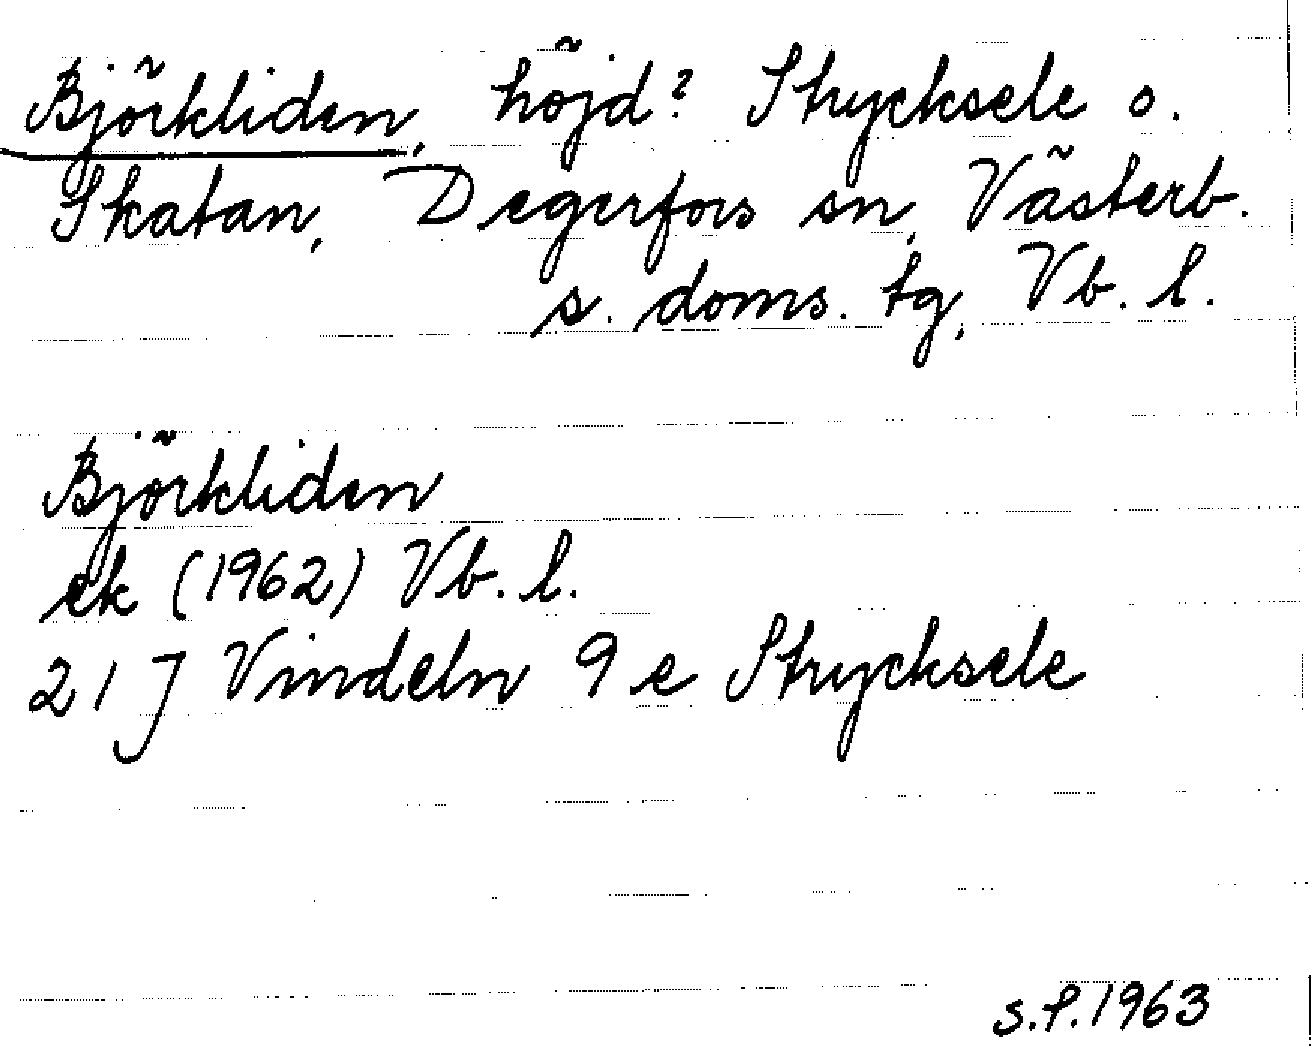 Björkliden, höjd? Strycksele o.
Skatan, Degerfors sn, Västerb.
s. doms. tg, Vb. l.
Björkliden
ek (1962) Vb. l.
21 J Vindeln 9 e Strycksele
s.f. 1963